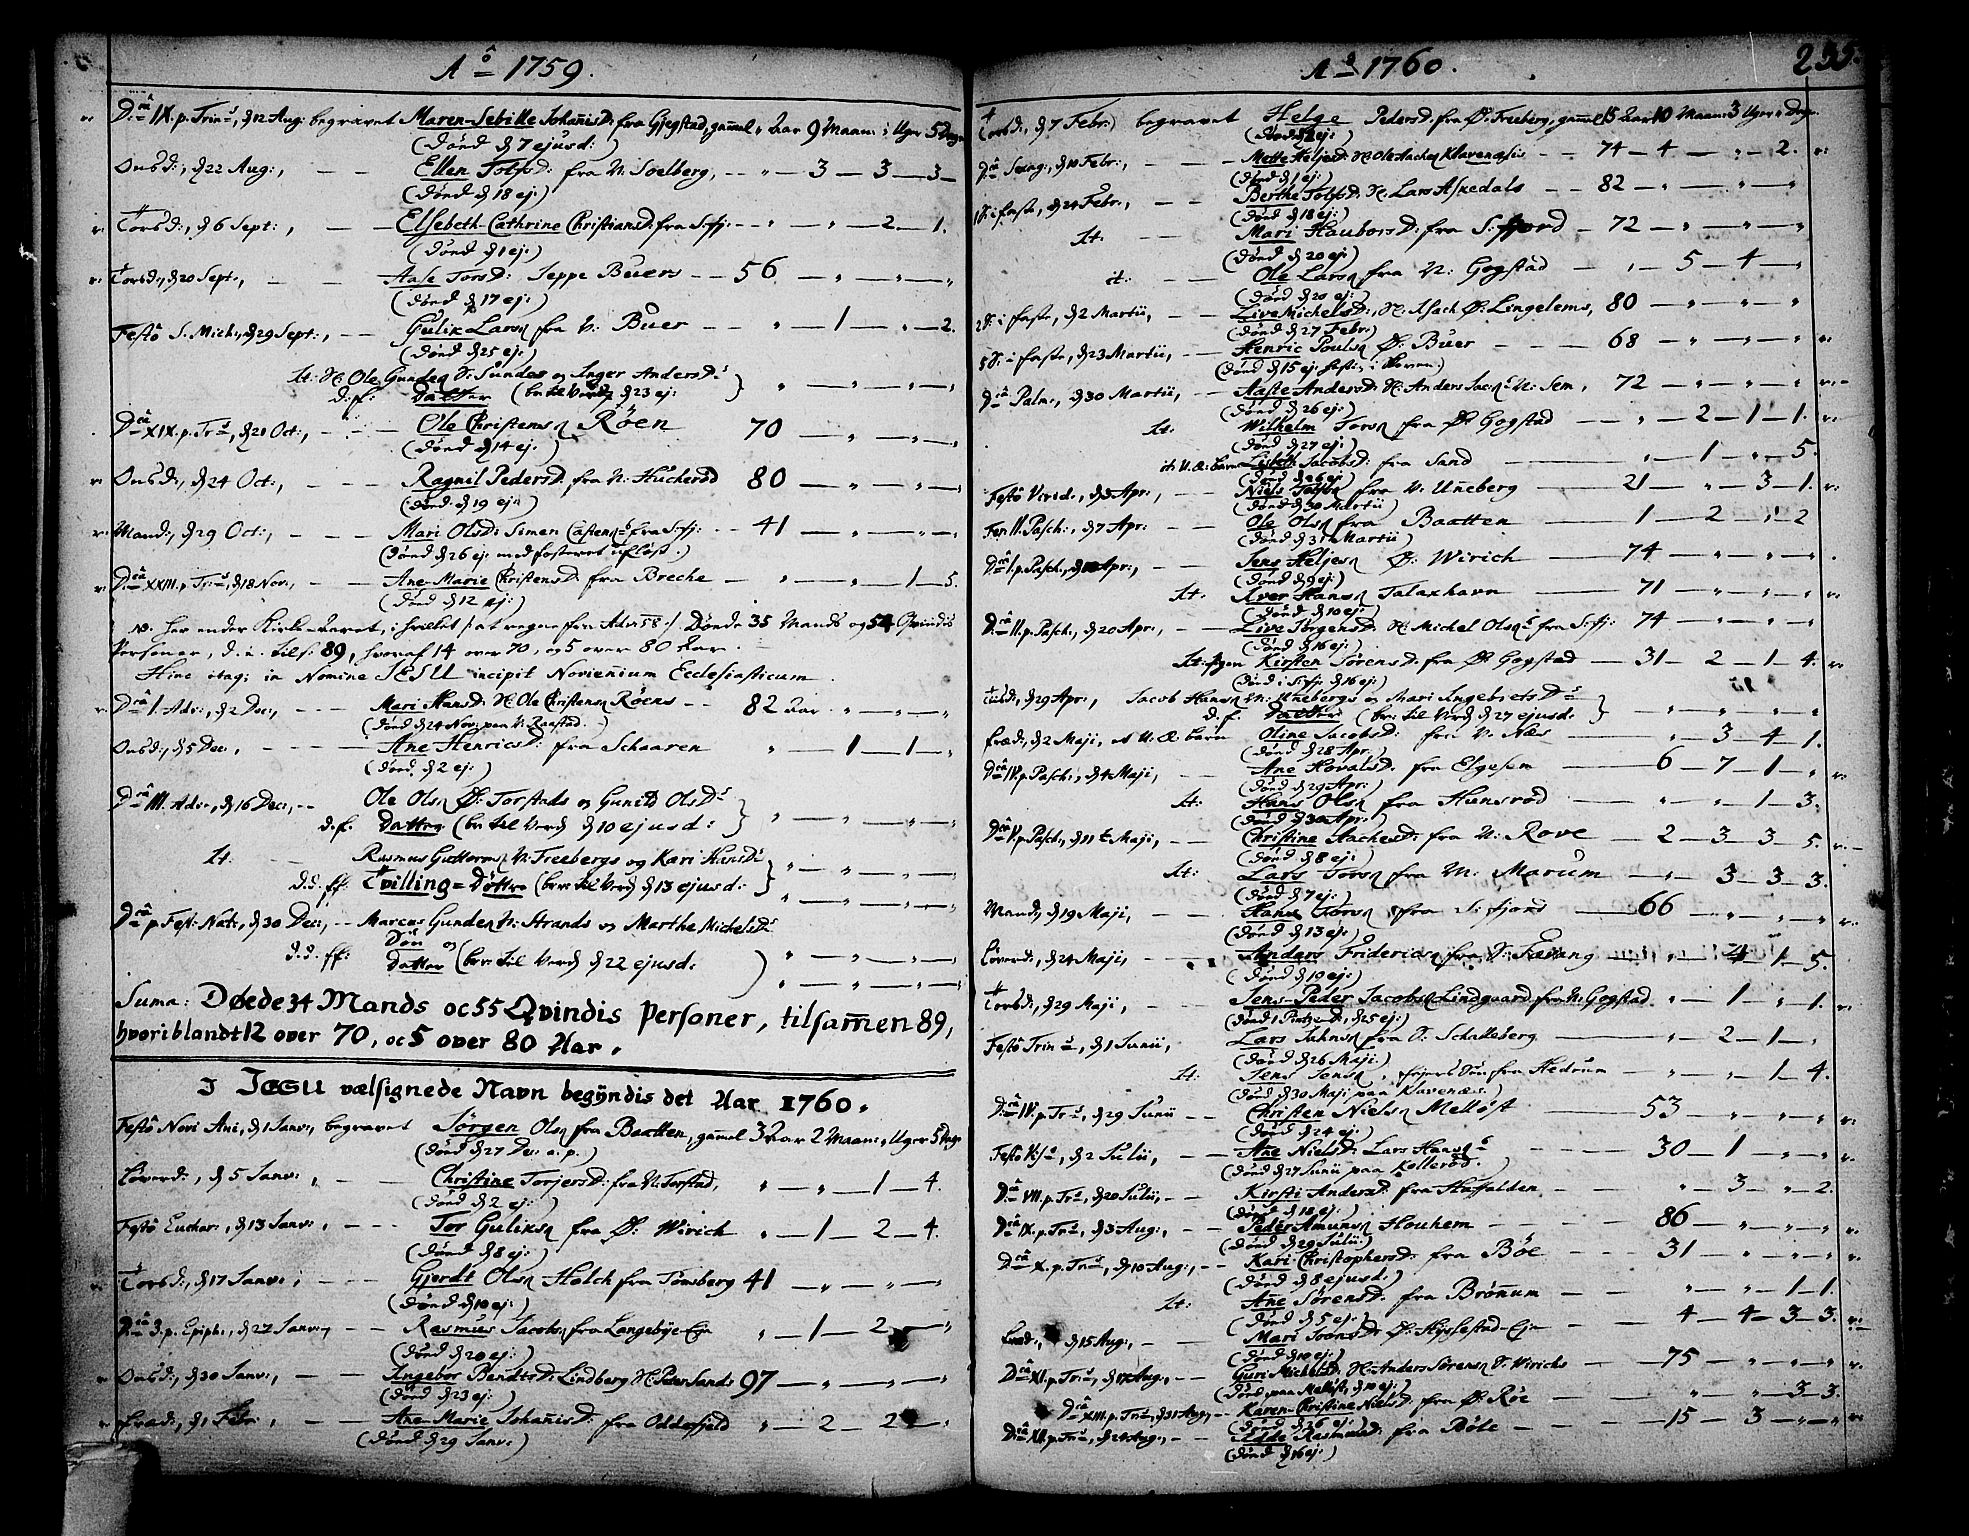 Aº 1759.
D:câ IX. p. Trin:, d. 12 Aug: begravet Maren-Sebille Johanisd: fra Gjegstad, gammel " Aar 9 Maan: " Uger 5 Dage
(Dønd d. 7 ejusd:)
Onsd:, d. 22 Aug:, — — Ellen Tolfsd: fra N: Soelberg, — " — 3 — 3 — 3 —
(Dønd d. 18 ej:)
Torsd:, d. 6 Sept:, — — Elsebeth-Cathrine Christiansd: fra S:fj: — " — " — 2 — 1.
(Dønd d. 1 ej:)
Torsd:, d. 20 Sept:, — — Aase Torsd: Jeppe Buers — 56 — " — " — "
(Dønd d. 17 ej:)
Festo S. Mich:, d. 29 Sept:, — Gulix Larsn fra N: Buer — " — 1 — " — 2.
(Dønd d. 25 ej:)
It: H: Ole Gundersn S: Sundes og Inger Andersd:s
d. f. Datter (br: til Verden d. 23 ej: } " — " — " — "
D:câ XIX. p. Tr:, d. 21 Oct:, — Ole Christensn Röen 70 — " — " — "
(Dønd d. 14 ej:)
Onsd:, d. 24 Oct:, — — Ragnil Pedersd: fra N: Hucherød 80 — " — " — "
(Dønd d. 19 ej:)
Mand:, d. 29 Oct:, — — Mari Olsd: Simen fra S:fj: — 41 — " — " — "
(Dønd d. 26 ej: med fosteret uforløst.)
D:câ XXIII. p. Tr:, d. 18 Nov:, — Ane-Marie Christensd: fra Breche — " — " — 1 — 5.
(Dønd d. 12 ej:)
NB. Her ender Kirke-Aaret, i hvilket /: at regne fra Adv: 58 :/ Døende 35 Mands og 54 Qvindis
Personer, d. e. tils: 89, hvoraf 14 over 70, og 5 over 80 Aar.
Hinc itaq; in Nomine JESU incipit Novennium Ecclesiasticum.
D:câ I. Adv:, d. 2 Dec:, — Mari Hansd: H: Ole Christensn Röens — 82 Aar " — " — "
(Dønd d. 24 Nov: paa N: Raastad.)
Onsd:, d. 5 Dec:, — — Ane Henricsd: fra Schaaren " — 1 — 1 — "
(Dønd d. 2 ej:)
D:câ III. Adv:, d. 16 Dec:, — Ole Olsn Ø: Torstads og Gunild Olsd:s
d. f. Datter (br: til Verd: d. 10 ejusd: } " — " — " — "
It: — Rasmus Guttormsn N: Freebergs og Kari Hansd:s
d. d. ff: Tvilling-Døttre (br: til Verd: d. 13 ejusd: } " — " — " — "
D:câ p. Fest: Nat:, d. 30 Dec:, — Marcus Gundersn N: Strands og Marthe Michelsd:s
d. d. ff: Søn og
Datter (br: til Verd: d. 22 ejusd: ) " — " — " — "
Suma: Døede 34 Mands oc 55 Qvindis Personer, tilsammen 89,
hvoriblandt 12 over 70, oc 5 over 80 Aar.
I JESU velsignede Navn begyndis det Aar 1760.
Festo Novi Ani, d. 1 Janv:, begravet Sörgen Olsn fra Baatten, gammel 3 Aar 2 Maan: " Uger 5 Dage
(Dønd d. 27 Dec: a. p.)
Löverd:, d. 5 Janv:, — Christine Torjersd: fra N: Torstad, " — " — 1 — 4.
(Dønd d. 2 ej:)
Festo Euchar:, d. 13 Janv:, — Tor Guliksn fra Ø: Wirich " — 1 — 2 — 4.
(Dønd d. 8 ej:)
Torsd:, d. 17 Janv:, — — Gjerdt Olsn Holch fra Tønsberg 41 — " — " — "
(Dønd d. 10 ej:)
D:câ 3. p. Epiph:, d. 27 Janv:, — Rasmus Jacobsn fra Langebye-Eje " — 1 — 2 — "
(Dønd d. 20 ej:)
Onsd:, d. 30 Janv:, — Ingebor Bendtsd: Lindberg H: Peder Sands 97 — " — " — "
(Dønd d. 23 ej:)
Fred:, d. 1 Febr:, — — Ane-Marie Johanisd: fra Oddersfjeld " — 2 — 2 — "
(Dønd d. 29 Janv:)
Aº 1760.
235.
Torsd:, d. 7 Febr:) begravet Helge Pedersd: fra Ø: Freeberg, gammel 15 Aar 10 Maan: 3 Uger " Dage
(Dønd d. 2 ej:)
D:câ Sexag:, d. 10 Febr:, — — Mette Heljesd: H: Ole Aachesn Klavenæsis — 74 — 4 — " — 2.
(Dønd d. 1 ej:)
1 S: i Faste, d. 24 Febr:, — — Berthe Tolfsd: H: Lars Askedals — 82 — " — " — "
(Dønd d. 18 ej:)
It: — Mari Hauborsd: fra S: fjord — 72 — " — " — "
(Dønd d. 20 ej:)
it: — Ole Larsn fra N: Gogstad — " — 5 — 4 — "
(Dønd d. 20 ej:)
2 S: i Faste, d. 2 Martii, — Live Michelsd:, H: Isach Ø: Lingelems, 80 — " — " — "
(Dønd d. 27 Febr:)
5 S: i Faste, d. 23 Martii, — Henric Poulsn Ø: Buer — 68 — " — " — "
(Dønd d. 15 ej: )
D:câ Palm:, d. 30 Martii, — Aaste Andersd: H: Anders Jac:sn N: Sem, 72 — " — " — "
(Dønd d. 26 ej:)
It: Wilhelm Torsn fra Ø: Gogstad — " — 2 — 1 — 1.
(Dønd d. 27 ej:)
it: U. Æ: barn Lisbeth Jacobsd: fra Sand — " — 1 — " — 5.
(Dønd d. 26 ej:)
Festo Virid:, d. 3 Apr:, — Niels Tolfsn fra N: Uneberg — 21 — " — 3 — 1.
(Dønd d. 30 Martii)
Fer: II. Pasch:, d. 7 Apr: — Ole Olsn fra Baatten — 1 — 2 — " — 2
(Dønd d. 31 Martii)
D:câ I. p. Pasch:, d. 13 Apr:, — Jens Heljesn Ø: Wirich — 74 — " — " — "
(Dønd d. 9 ej:)
It: Iver Hansn Talaxhavn — 71 — " — " — "
(Dønd d. 10 ej:)
D:câ II. p. Pasch:, d. 20 Apr:, — Live Jörgensd: H: Michel Olsn:s fra S:fj: 74 — " — " — "
(Dønd d. 16 ej:)
It: Kirsten Sörensd: fra Ø: Gogstad — 31 — 2 — 1 — 4.
(Dønd i S:fj: d. 16 ej:)
Tiisd:, d. 29 Apr:, Jacob Hansn N: Unebergs og Mari Ingebretsd:s
d. f. Datter (br: til Verd: d. 27 ejusd: } " — " — " — "
Fred:, d. 2 Maji, et U: Æ: barn Oline Jacobsd: fra N: Næs — " — 3 — 4 — 1.
(Dønd d. 28 Apr:)
D:câ IV. p. Pasch:, d. 4 Maji, — Ane Hovalsd: fra Elgesem — 6 — 7 — 1 — "
(Dønd d. 29 Apr:)
It: Hans Olsn fra Hunsrød — " — " — 1 — 3.
(Dønd d. 30 Apr:)
D:câ V. p. Pasch:, d. 11te Maji, — Christine Aachesd: fra N: Rove — 2 — 3 — 3 — 5.
(Dønd d. 8 ej:)
It: Lars Torsn fra M: Marum — " — 3 — 3 — 3.
(Dønd d. 7 ej:)
Mand:, d. 19 Maji, — — Hans Torsn fra S: fjord — 66 — " — " — "
(Dønd d. 13 ej:)
Löverd:, d. 24 Maji, — — Anders Fridericsn fra S: Fævang — " — 4 — 1 — 5.
(Dønd d. 19 ej:)
Torsd:, d. 29 Maji — — Jens-Peder Jacobsn Lindgaard fra N: Gogstad " — 1 — " — 1.
(Dønd 1 Pintzed:, d. 25 ej:)
Festo Trin:, d. 1 Junii, — Lars Juhnsn fra S: Schalleberg — " — 2 — 1 — "
(Dønd d. 26 Maji.)
It: Jens Jensn, Søn fra Hedrum — " — " — 1 — 4.
(Dønd d. 30 Maji paa Klavenæs.)
D:câ IV. p. Tr:, d. 29 Junii — Christen Nielsn Melløst — 53 — " — " — "
(Dønd d. 24 ej:)
Festo Vis:, d. 2 Julii, — — Ane Nielsd: Lars Hansn:s — 30 — 1 — " — "
(Dønd d. 27 Junii paa Kollerød.)
D:câ VII. p. Tr:, d. 20 Julii, — Kirsti Andersd: fra Haffalden — " — 3 — " — 2.
(Dønd d. 18 ej:)
D:câ IX. p. Tr:, d. 3 Aug:, — Peder Amunsn Houhem — 86 — " — " — "
(Dønd d. 29 Julii)
D:câ X. p. Tr:, d. 10 Aug:, — Kari Christophersd: fra Böe — 31 — " — " — "
(Dønd d. 8 ejusd:)
It: Ane Sörensd: fra Brönum — " — " — 1 — 1.
(Dønd d. 5 ej:)
Fred:, d. 15 Aug:, — Mari Ivarsd: Ø: Hyllestad-Eje — 4 — 4 — 3 — 3.
(Dønd d. 10 ej:)
D:câ XI. p. Tr:, d. 17 Aug:, — Guri Michelsd: H: Anders Sörensn S: Wirichs — 75 — " — " — "
(Dønd paa Melløst, d. 10 ej:)
D:câ XIII. p. Tr:, d. 31 Aug:, — Karen-Christine Nielsd: fra Ø: Röe " — " — 3 — 3.
(Dønd d. 26 ej:)
D:câ XII. p. Tr:, d. 24 Aug:, — Rasmusd: fra Böle — 15 — 3 — " — "
(Dønd d. 16 ej:)